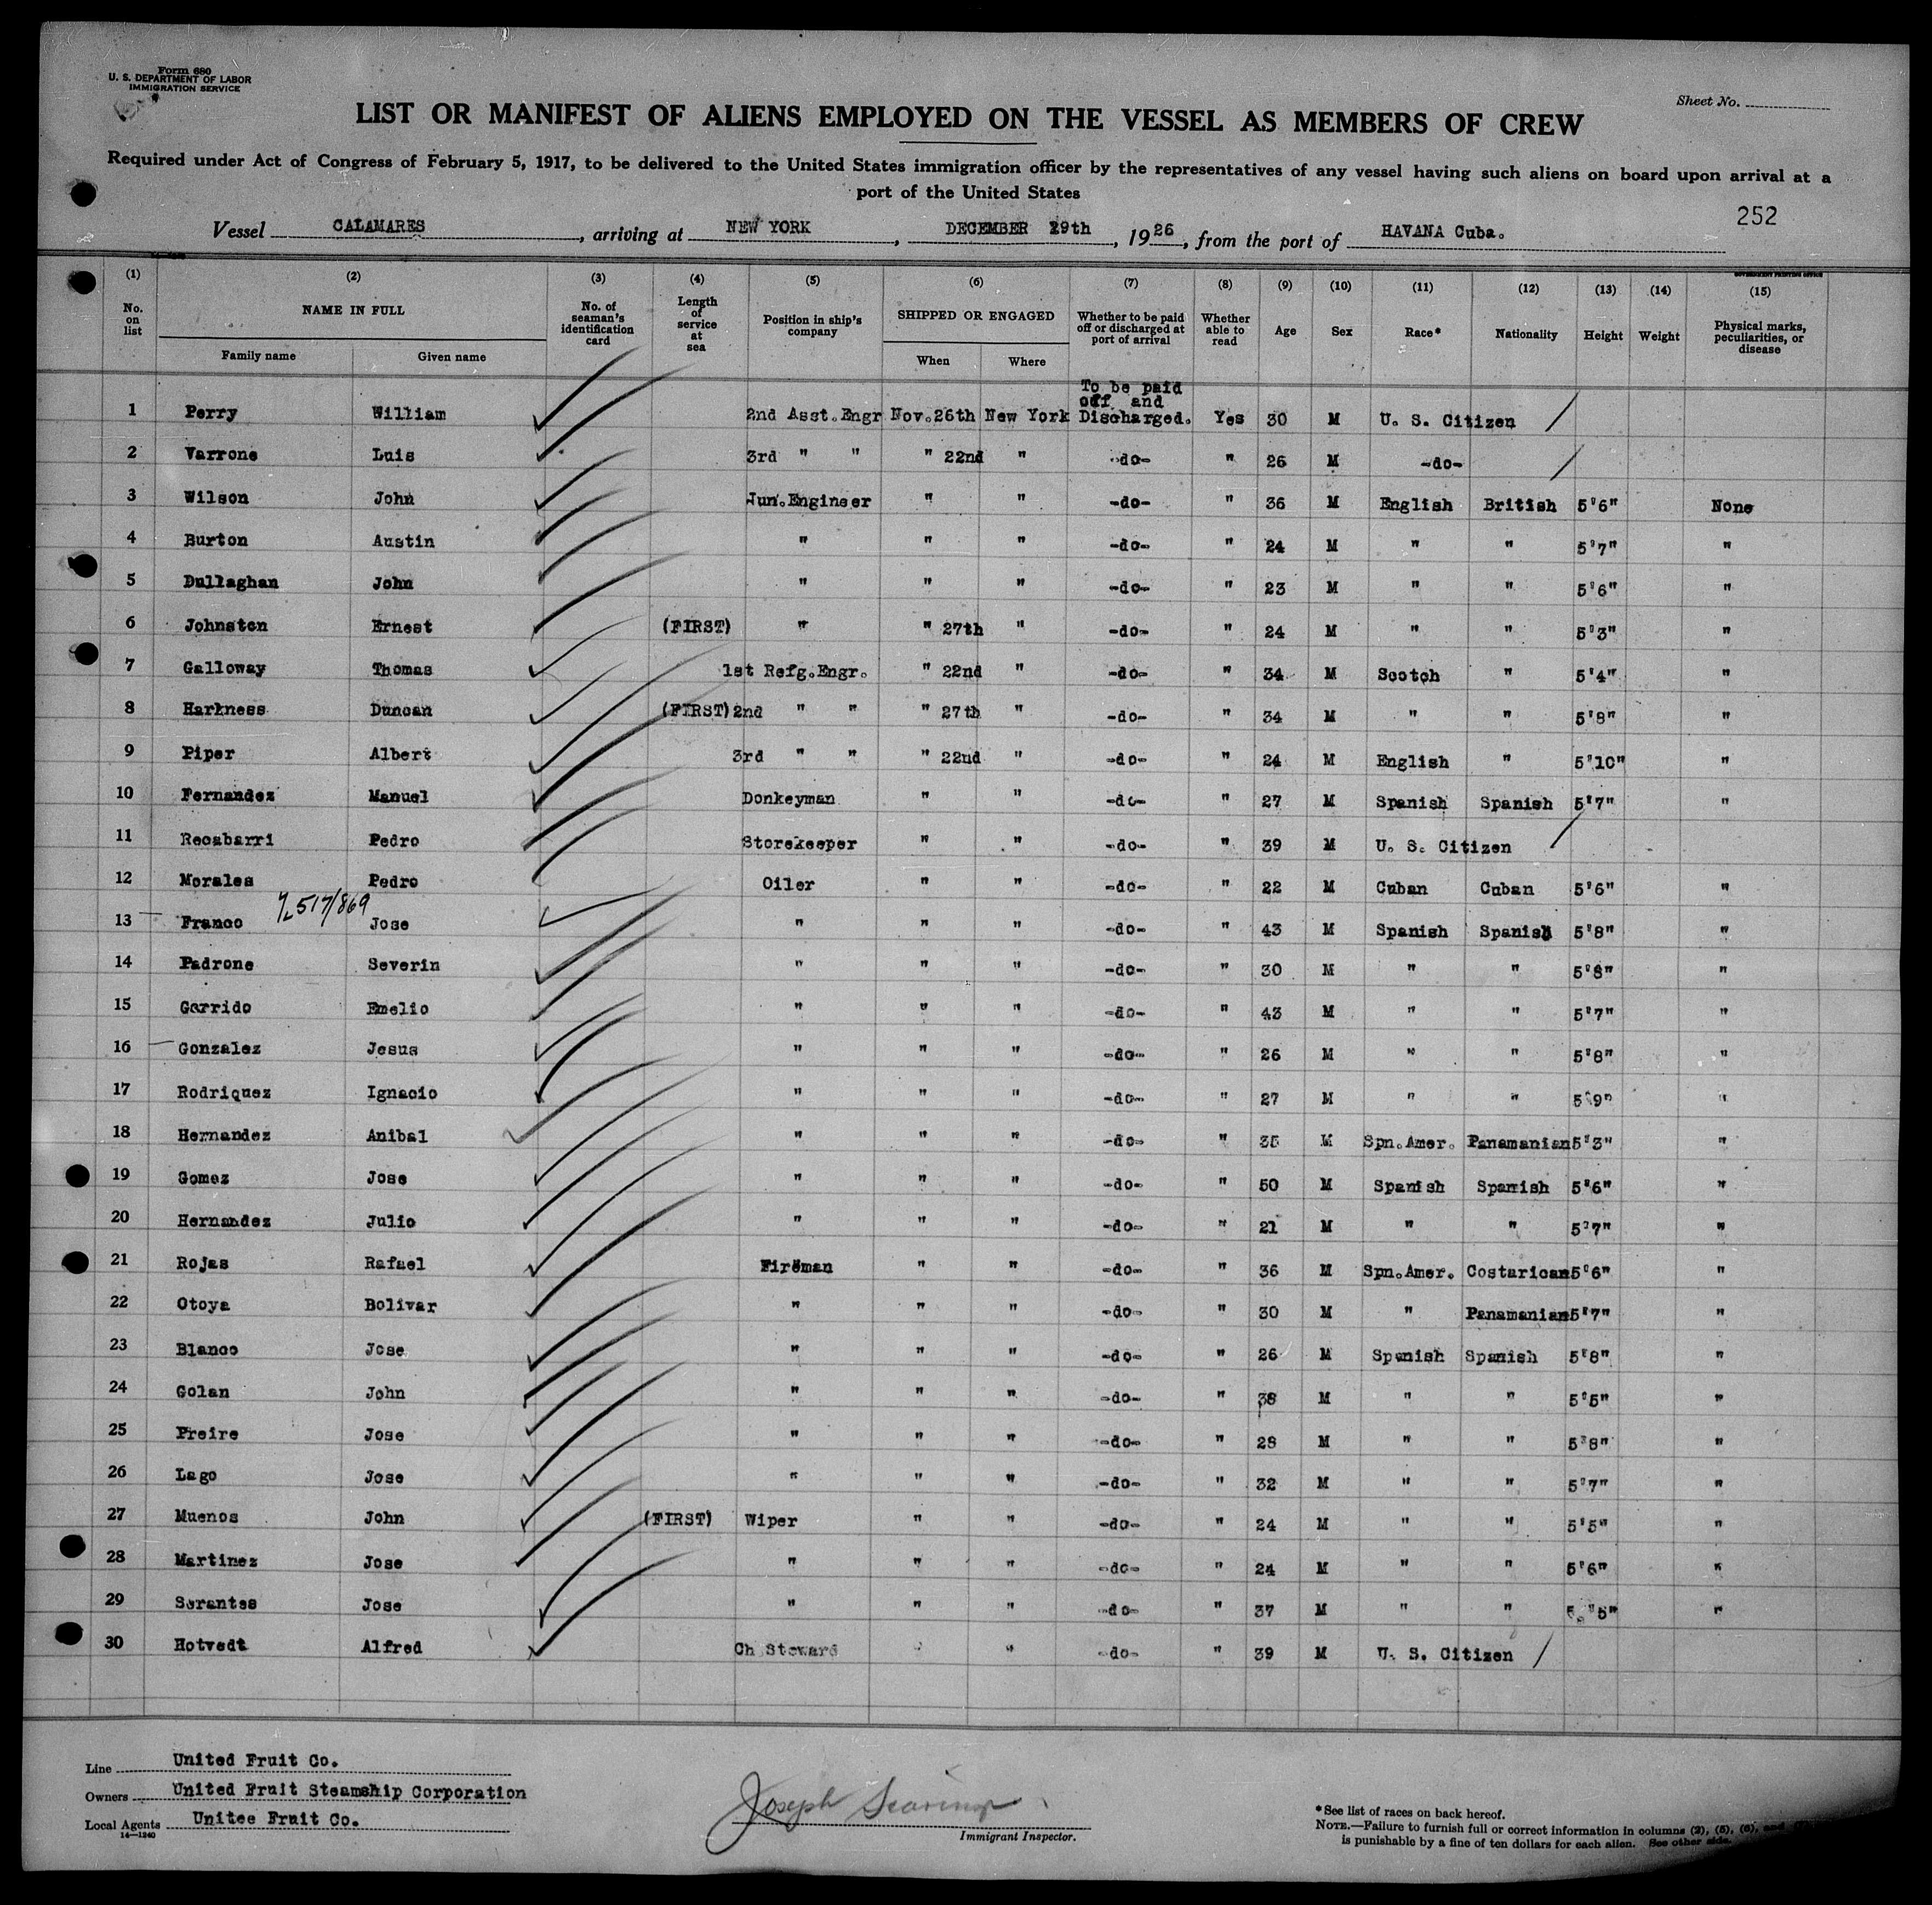 Form 680
U. S. DEPARTMENT OF LABOR
IMMIGRATION SERVICE
Sheet No.
LIST OR MANIFEST OF ALIENS EMPLOYED ON THE VESSEL AS MEMBERS OF CREW
Required under Act of Congress of February 5, 1917, to be delivered to the United States immigration officer by the representatives of any vessel having such aliens on board upon arrival at a
port of the United States
252
Vessel CALAMARES, arriving at NEW YORK, DECEMBER 29th, 1926, from the port of HAVANA Cuba.
GOVERNMENT PRINTING OFFICE
(1) (2) (3) (4) (5) (6) (7) (8) (9) (10) (11) (12) (13) (14) (15)
No. on list NAME IN FULL Family name Given name No. of seaman's identification card Length of service at sea Position in ship's company SHIPPED OR ENGAGED When Where Whether to be paid off or discharged at port of arrival Whether able to read Age Sex Race* Nationality Height Weight Physical marks, peculiarities, or disease
1 Perry William 2nd Asst.Engr Nov.26th New York To be paid off and Discharged. Yes 30 M U. S. Citizen /
2 Varrone Luis 3rd " " " 22nd " -do- " 26 M -do- /
3 Wilson John Jun.Engineer " " -do- " 36 M English British 5'6" None
4 Burton Austin " " " -do- " 24 M " " 5'7" "
5 Dullaghan John " " " -do- " 23 M " " 5'6" "
6 Johnston Ernest (FIRST) " " 27th " -do- " 24 M " " 5'3" "
7 Galloway Thomas 1st Refg.Engr. " 22nd " -do- " 34 M Scotch " 5'4" "
8 Harkness Duncan (FIRST) 2nd " " " 27th " -do- " 34 M " " 5'8" "
9 Piper Albert 3rd " " " 22nd " -do- " 24 M English " 5'10" "
10 Fernandez Manuel Donkeyman " " -do- " 27 M Spanish Spanish 5'7" "
11 Recabarri Pedro Storekeeper " " -do- " 39 M U. S. Citizen /
12 Morales Pedro Oiler " " -do- " 22 M Cuban Cuban 5'6" "
13 Franco 517/869 Jose " " " -do- " 43 M Spanish Spanish 5'8" "
14 Padrone Severin " " " -do- " 30 M " " 5'8" "
15 Garrido Emelio " " " -do- " 43 M " " 5'7" "
16 Gonzalez Jesus " " " -do- " 26 M " " 5'8" "
17 Rodriquez Ignacio " " " -do- " 27 M " " 5'9" "
18 Hernandez Anibal " " " -do- " 35 M Spn.Amer. Panamanian 5'3" "
19 Gomez Jose " " " -do- " 50 M Spanish Spanish 5'6" "
20 Hernandez Julio " " " -do- " 21 M " " 5'7" "
21 Rojas Rafael Fireman " " -do- " 36 M Spn.Amer. Costarican 5'6" "
22 Otoya Bolivar " " " -do- " 30 M " Panamanian 5'7" "
23 Blanco Jose " " " -do- " 26 M Spanish Spanish 5'8" "
24 Golan John " " " -do- " 38 M " " 5'5" "
25 Preire Jose " " " -do- " 28 M " " 5'8" "
26 Lago Jose " " " -do- " 32 M " " 5'7" "
27 Muenos John (FIRST) Wiper " " -do- " 24 M " " 5'5" "
28 Martinez Jose " " " -do- " 24 M " " 5'6" "
29 Serantes Jose " " " -do- " 37 M " " 5'5" "
30 Hotvedt Alfred Ch Steward " " -do- " 39 M U. S. Citizen /
Line United Fruit Co.
Owners United Fruit Steamship Corporation
Local Agents Unitee Fruit Co.
14—1240
Joseph
Immigrant Inspector.
*See list of races on back hereof.
NOTE.—Failure to furnish full or correct information in columns (2), (5), (6), and
is punishable by a fine of ten dollars for each alien. See other side.